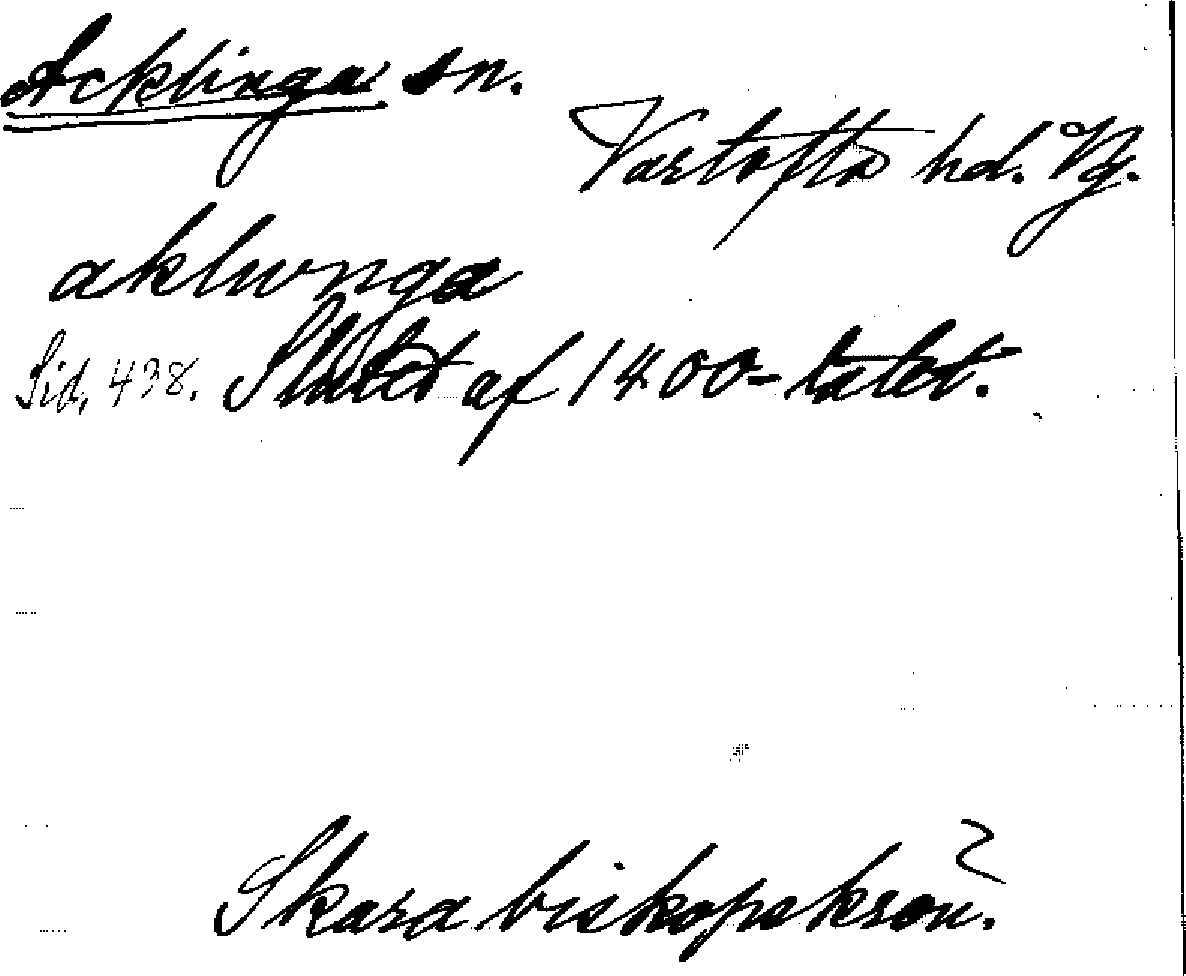 Acklinga sn.
Vartofta hd. Vg.
aklunga
Sid. 438. Slutet af 1400-talet.
Skara biskopskrön.